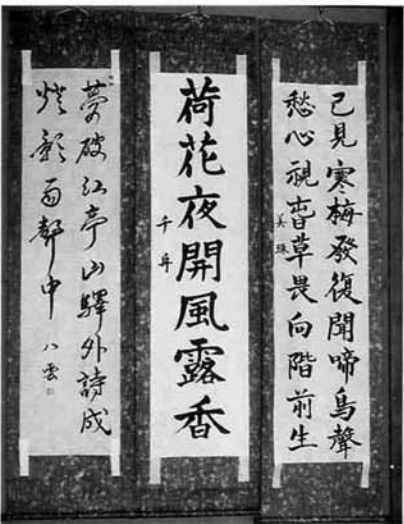 已見寒梅發復聞啼鳥聲
愁心視旾草畏向階前生
美珠
荷花夜開風露香
千舟
夢破江亭山驛外詩成
燈影雨聲中
八雲